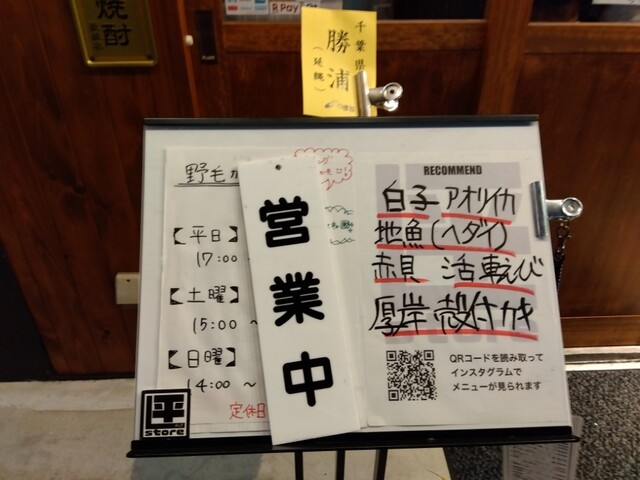 焼酎
R Pay
千葉県
勝浦
(延縄)
野毛
【平日】
17:00
【土曜】
15:00 ~
【日曜】
14:00 ~
定休日
営業中
RECOMMEND
白子 アオリイカ
地魚(ヘダイ)
赤貝 活車えび
厚岸 殻付カキ
QRコードを読み取って
インスタグラムで
メニューが見られます
平
store